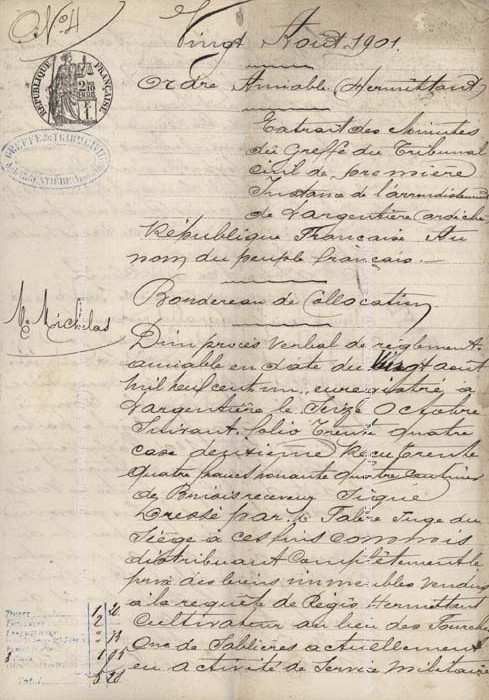 N° 4
Vingt Août 1901.
RÉPUBLIQUE FRANÇAISE
Ordre Amiable (Hermittant)
Extrait des Minutes
du Greffe du Tribunal
Civil de première
Instance de l'arrondissement
de Largentière (ardèche)
République Française Au
nom du peuple français.
Bordereau de Collocation
Me Michelas
D'un procès verbal de règlement
amiable en date du Vingt août
mil neuf cent un, enregistré à
Largentière le Seize Octobre
Suivant, folio Trente quatre
case deuxième Reçu trente
quatre francs soixante quatre centimes
de receveur Signé
Dressé par M. Fabre Juge du
Siège à ces fins commis
distribuant complètement le
prix des biens immeubles vendus
à la requête de Régis Hermittant
Cultivateur au lieu des
Cne de Sablières actuellement
en activité de Service Militaire
Total